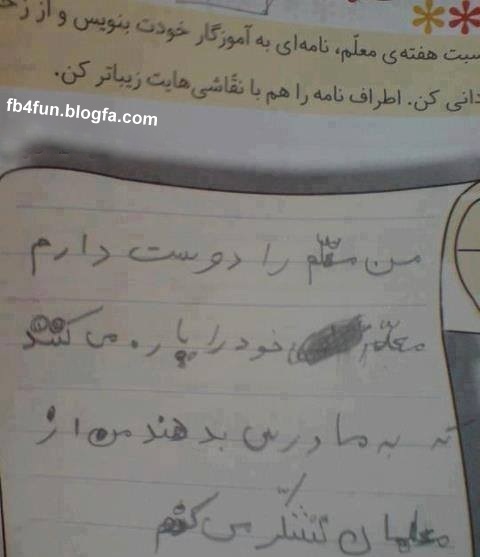 سبت هفته‌ی معلّم، نامه‌ای به آموزگار خودت بنویس و از زح
دانی کن. اطراف نامه را هم با نقّاشی‌هایت زیباتر کن.
fb4fun.blogfa.com
من معّلم را دوست دارم
معلّم خود را پاره می کنند
که به ما درس بدهند من از
معلمان تشّکر می کنم